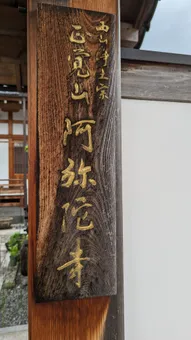 西山浄土宗
正覚山 阿弥陀寺